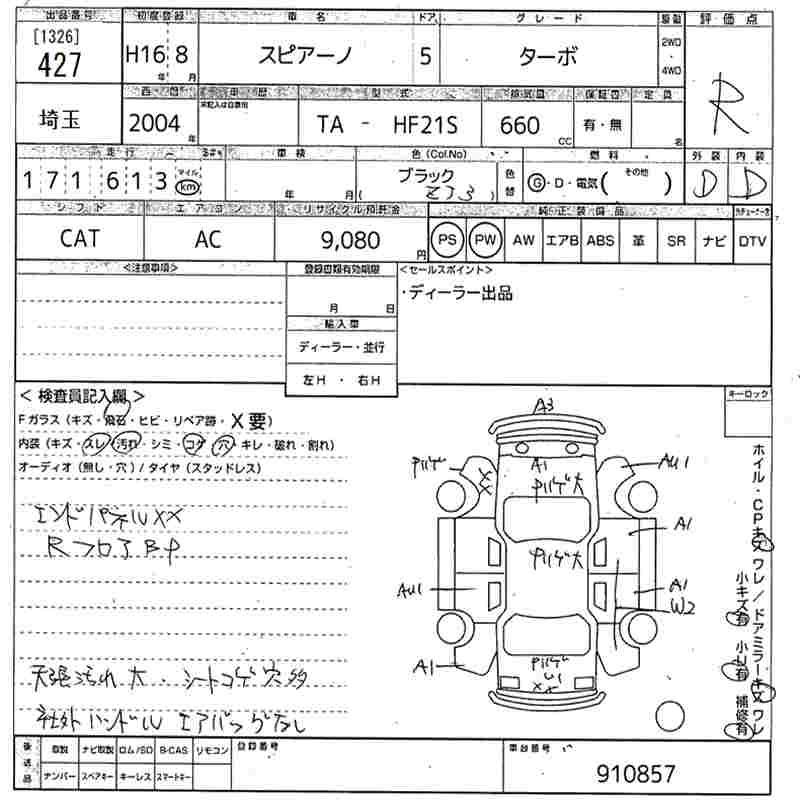 出品番号 初度登録 車名 ドア グレード 駆動 評価点
[1326]
427 H16年 8月 スピアーノ 5 ターボ 2WD・4WD R
西暦 車歴 型式 排気量 保証書 定員
未記入は自家用
埼玉 2004年 TA - HF21S 660cc 有・無 名
走行 車検 色(Col.No) 色替 燃料 外装 内装
171613 マイル km 年 月 ブラック ( ZJ3 ) G・D・電気( その他 ) D D
シフト エアコン リサイクル預託金 純正装備品
CAT AC 9,080円 PS PW AW エアB ABS 革 SR ナビ DTV
<注意事項> 登録書類有効期限 <セールスポイント>
月 日 ・ディーラー出品
輸入車
ディーラー・並行
左H・右H
<検査員記入欄> キーロック
Fガラス(キズ・飛石・ヒビ・リペア跡・X要)
内装(キズ・スレ・汚れ・シミ・コゲ・穴・キレ・破れ・割れ)
オーディオ(無し・穴)/タイヤ(スタッドレス)
エンドパネルXX
RフロアBP
天張汚れ大・シートコゲ穴多
社外ハンドル エアバッグなし
A3
Pハゲ XX A1 Pハゲ大 AU1
A1
Pハゲ大
AU1 A1
W2
A1 Pハゲ
U1
XX
ホイル・CPキズワレ/ドアミラーキズワレ
小キズ有 小U有 補修有
後送品 取説 ナビ取説 ロム/SD B-CAS リモコン 登録番号 車台番号
ナンバー スペアキー キーレス スマートキー 910857